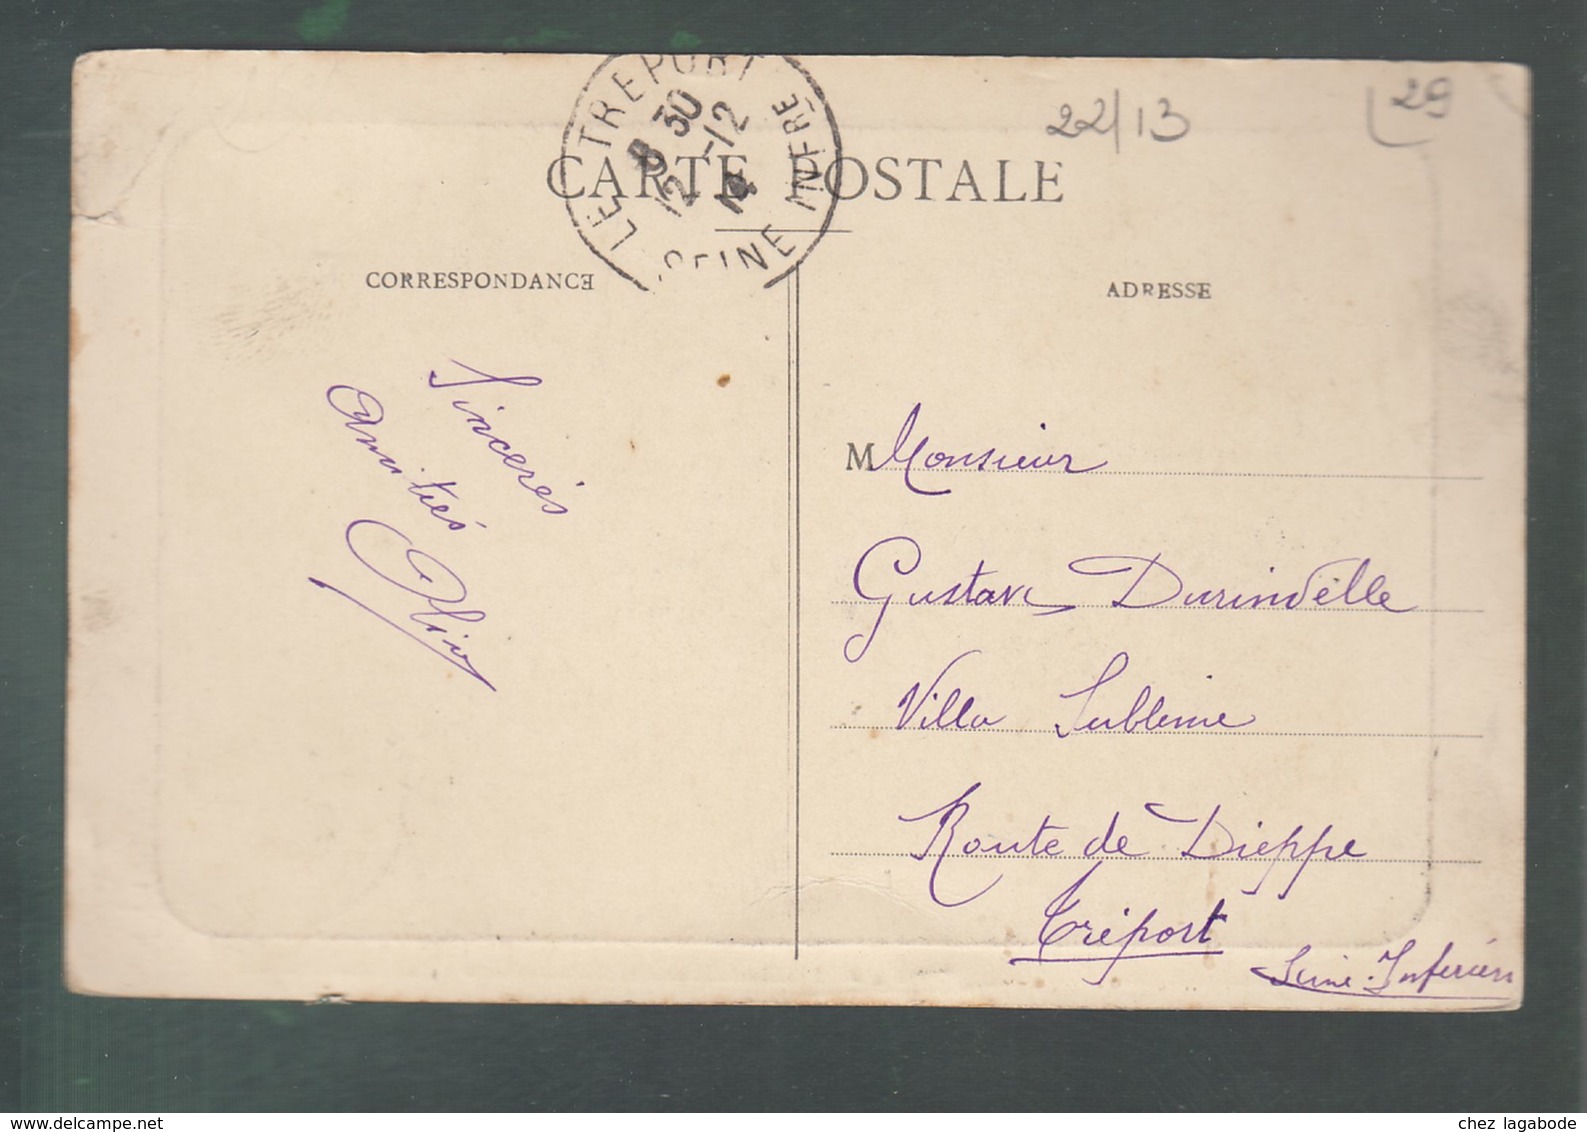 LE TREPORT
8 30
12 -12
14
SEINE INFRE
22/13
29
CARTE POSTALE
CORRESPONDANCE
ADRESSE
Sincères
amitiés
M Monsieur
Gustave Durindelle
Villa Sublime
Route de Dieppe
Tréport
Seine-Inférieu
www.delcampe.net
chez lagabode